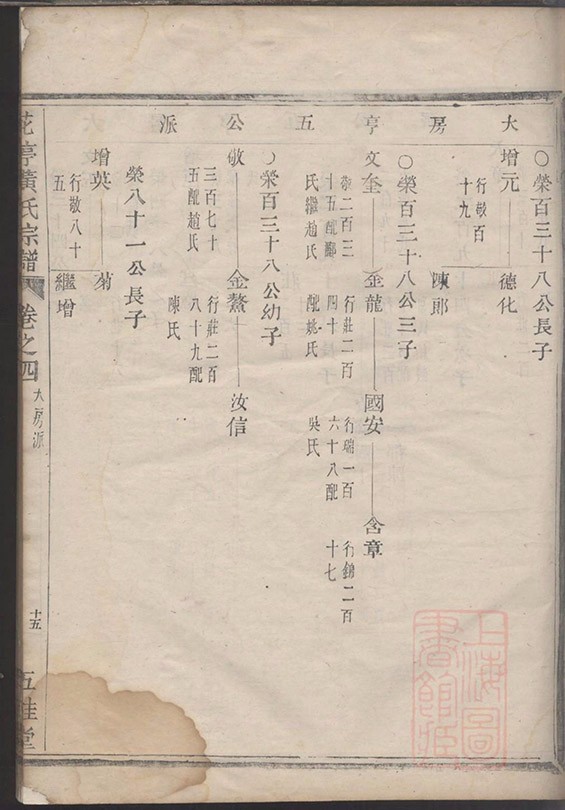 大房亨五公派
○榮百三十八公長子
增元
行敬百
十九
德化
陳郎
○榮百三十八公三子
文奎
敬二百三
十五配鄒
氏繼趙氏
金龍
行莊二百
四十陵
配姚氏
國安
行瑞一百
六十八配
吳氏
含章
行鏘二百
十七
○榮百三十八公幼子
敬
三百七十
五配趙氏
金鰲
行莊二百
八十九配
陳氏
汝信
榮八十一公長子
增英
行敬八十
五
菊
繼增
花亭黃氏宗譜
卷之四
大房派
十五
五桂堂
上海圖書館藏